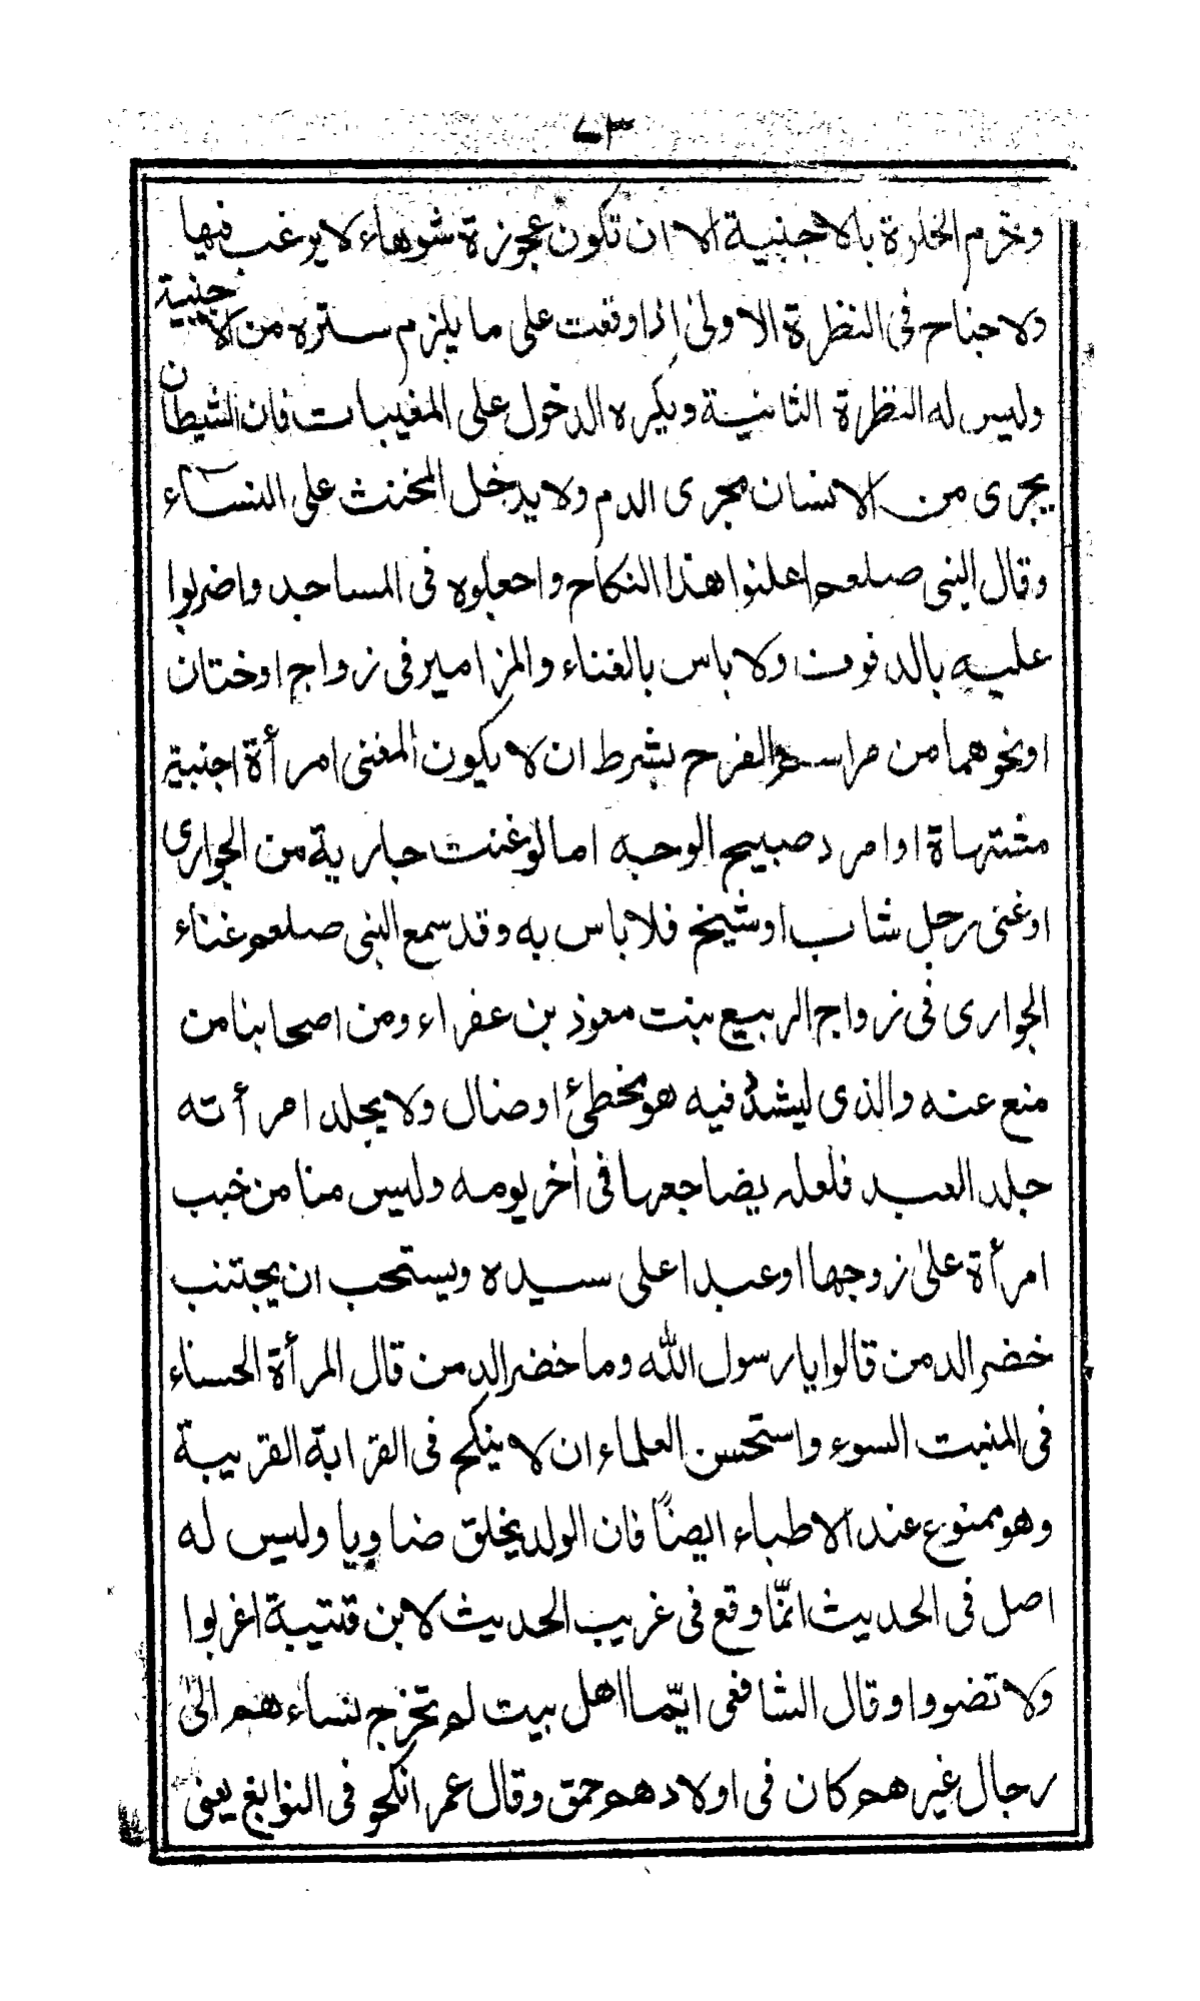 ٧٣
وتحرم الخلوة بالاجنبية الا ان تكون عجوزة شوهاء لا يرغب فيها
ولا جناح فى النظرة الاولىٰ اذا وقعت على ما يلزم ستره من الاجنبية
وليس له النظرة الثانية ويكره الدخول على المغيبات فان الشيطان
يجرى من الانسان مجرى الدم ولا يدخل المخنث على النساء
وقال النبى صلعم اعلنوا هذا النكاح واجعلوه فى المساجد واضربوا
عليه بالدفوف ولا باس بالغناء والمزامير فى زواج او ختان
او نحوهما من مراسم الفرح بشرط ان لا يكون المغنى امرأة اجنبية
مشتهاة او امرد صبيح الوجه اما لو غنت جارية من الجوارى
او غنى رجل شاب او شيخ فلا باس به وقد سمع النبى صلعم غناء
الجوارى فى زواج الربيع بنت معوذ بن عفراء ومن اصحابنا من
منع عنه والذى ليشدد فيه هو مخطئ او ضال ولا يجلد امرأته
جلد العبد فلعله يضاجعها فى أخر يومه وليس منا من خبب
امرأة علىٰ زوجها او عبدا على سيده ويستحب ان يجتنب
خضر الدمن قالوا يا رسول الله وما خضر الدمن قال المرأة الحسناء
فى المنبت السوء واستحسن العلماء ان لا ينكح فى القرابة القريبة
وهو ممنوع عند الاطباء ايضًا فان الولد يخلق ضاويا وليس له
اصل فى الحديث انّما وقع فى غريب الحديث لابن قتيبة اغربوا
ولا تضووا وقال الشافعى ايّما اهل بيت لم تخرج نساءهم الىٰ
رجال غيرهم كان فى اولادهم حمق وقال عمر انكحو فى النوابغ يعنى